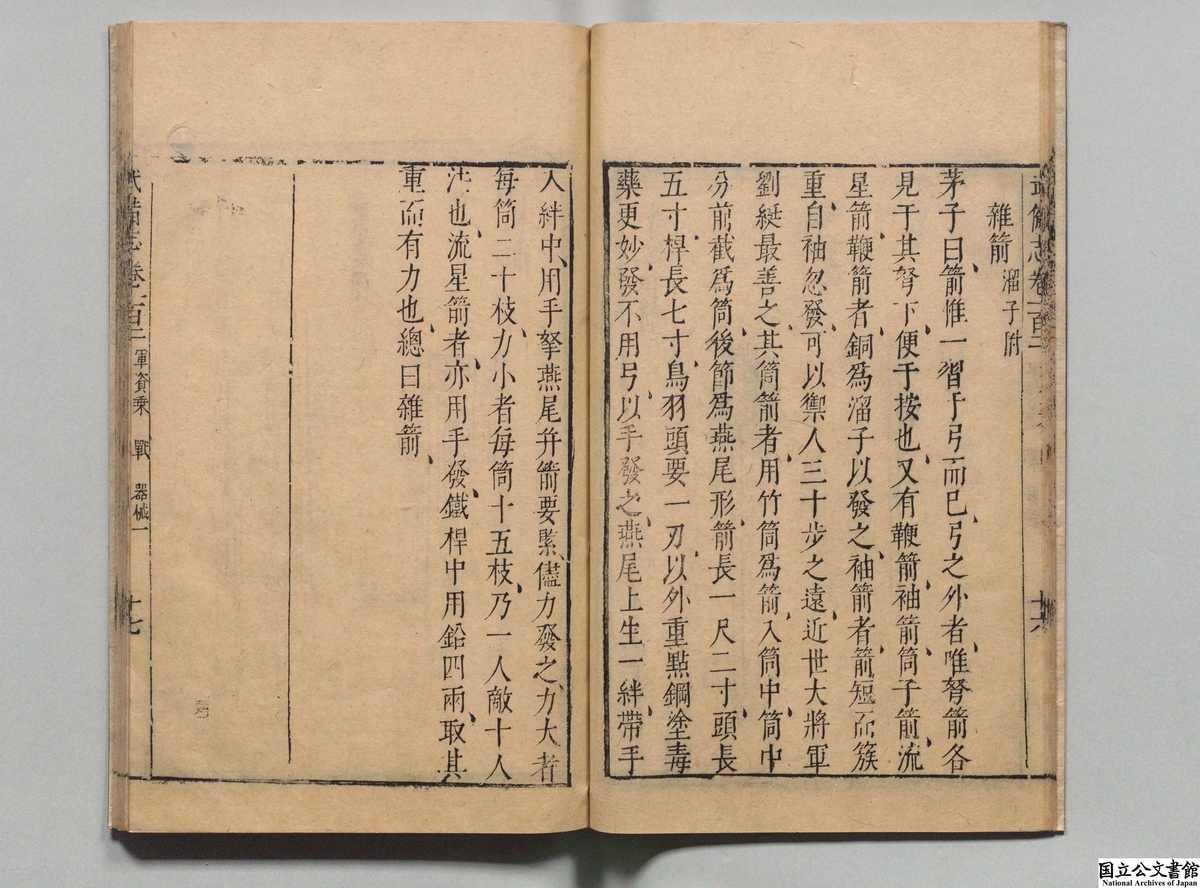 武備志卷一百二
十六
雜箭 溜子附
茅子曰箭惟一習于弓而已弓之外者唯弩箭各
見于其弩下便于按也又有鞭箭袖箭筒子箭流
星箭鞭箭者銅爲溜子以發之袖箭者箭短而簇
重自袖忽發可以禦人三十步之遠近世大將軍
劉綎最善之其筒箭者用竹筒爲箭入筒中筒中
分前截爲筒後節爲燕尾形箭長一尺二寸頭長
五寸桿長七寸鳥羽頭要一刃以外重點鋼塗毒
藥更妙發不用弓以手發之燕尾上生一絆帶手
入絆中用手拏燕尾并箭要緊儘力發之力大者
每筒二十枝力小者每筒十五枝乃一人敵十人
法也流星箭者亦用手發鐵桿中用鉛四兩取其
重而有力也總曰雜箭
武備志卷一百二 軍資乘 戰 器械一
十七
国立公文書館
National Archives of Japan